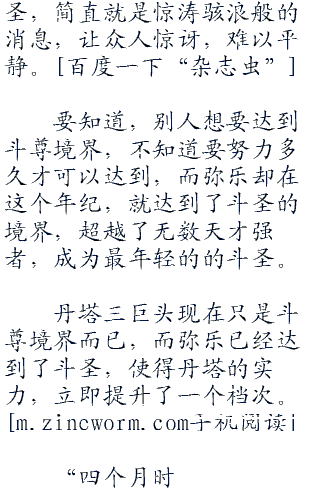 圣，简直就是惊涛骇浪般的
消息，让众人惊讶，难以平
静。[百度一下“杂志虫”]
要知道，别人想要达到
斗尊境界，不知道要努力多
久才可以达到，而弥乐却在
这个年纪，就达到了斗圣的
境界，超越了无数天才强
者，成为最年轻的的斗圣。
丹塔三巨头现在只是斗
尊境界而已，而弥乐已经达
到了斗圣，使得丹塔的实
力，立即提升了一个档次。
[m.zincworm.com手机阅读i
“四个月时